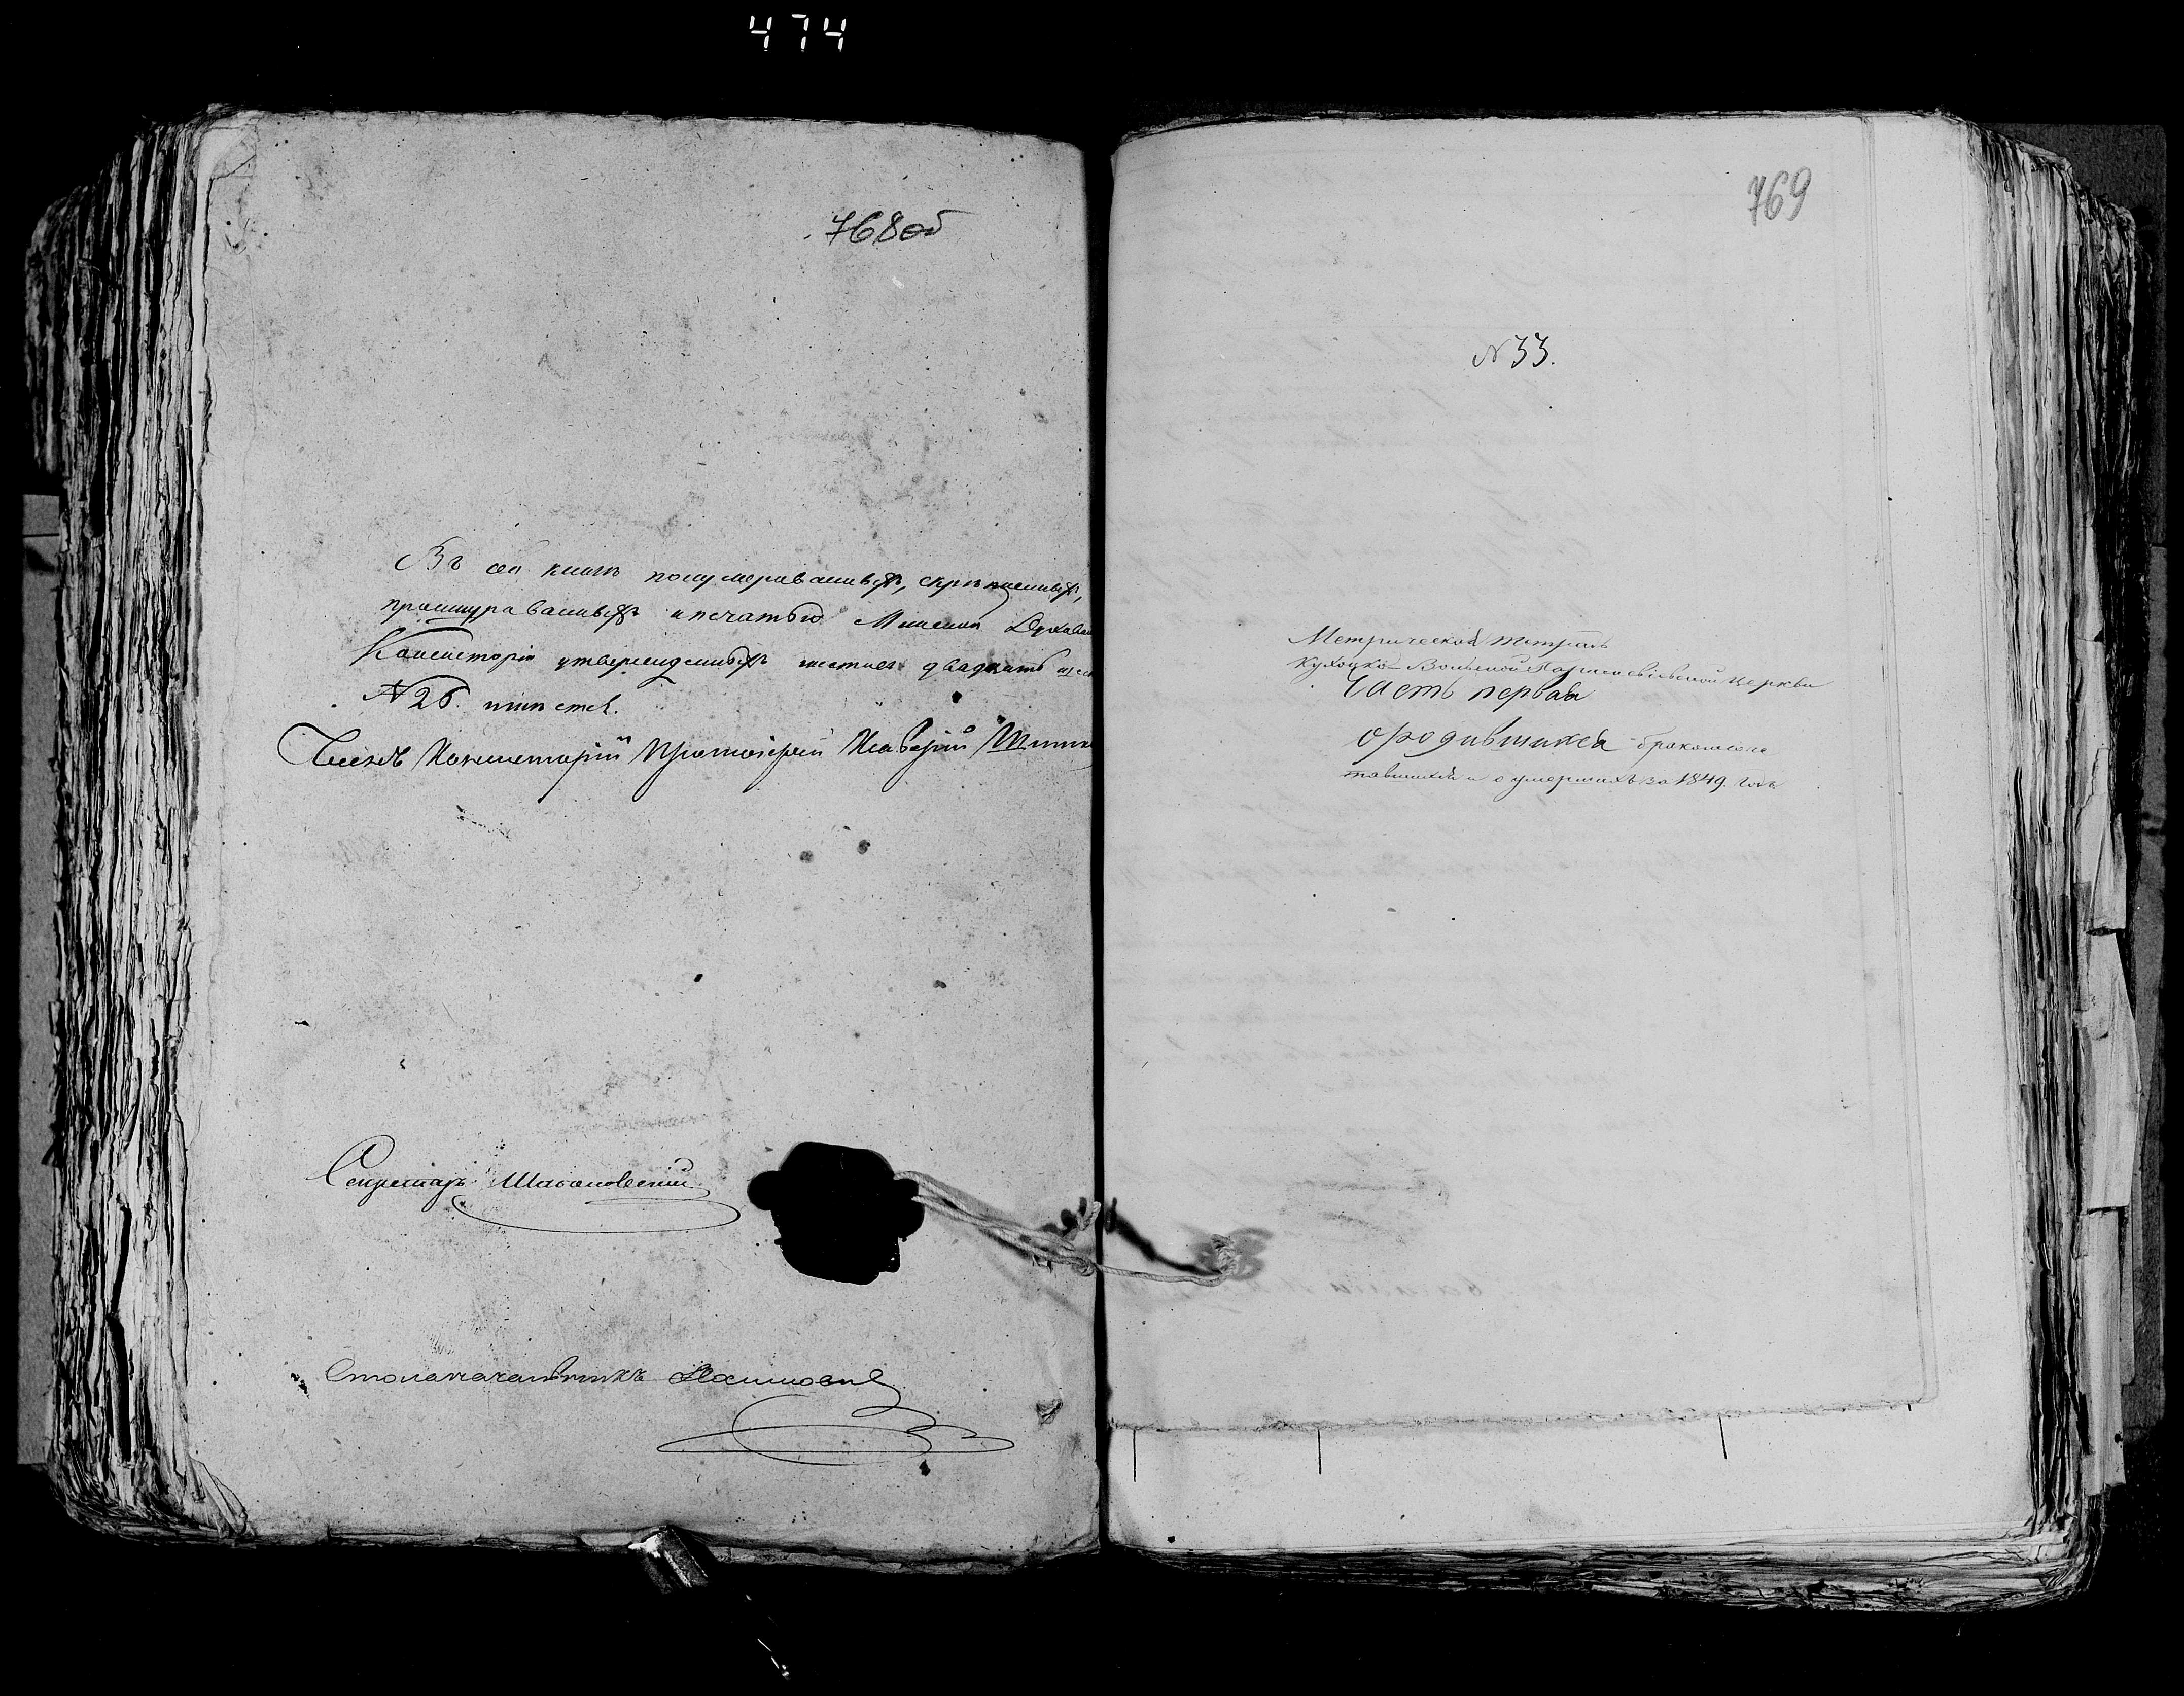 474
768об
Въ сей книгѣ нонумерованныхъ, скрѣпленныхъ,
прошнурованныхъ и печатью Минской Духовной
Консисторіи утвержденныхъ листовъ двадцать шес
№ 26. листовъ.
Членъ Консисторіи Протоіерей
Секретарь
Столоначальникъ
769
№ 33.
Метрической тетрадь
Кухоцко-Вольской Параскевіевской церкви
Часть первая
о родившихся бракосоче
тавшихся и о умершихъ за 1849. годъ